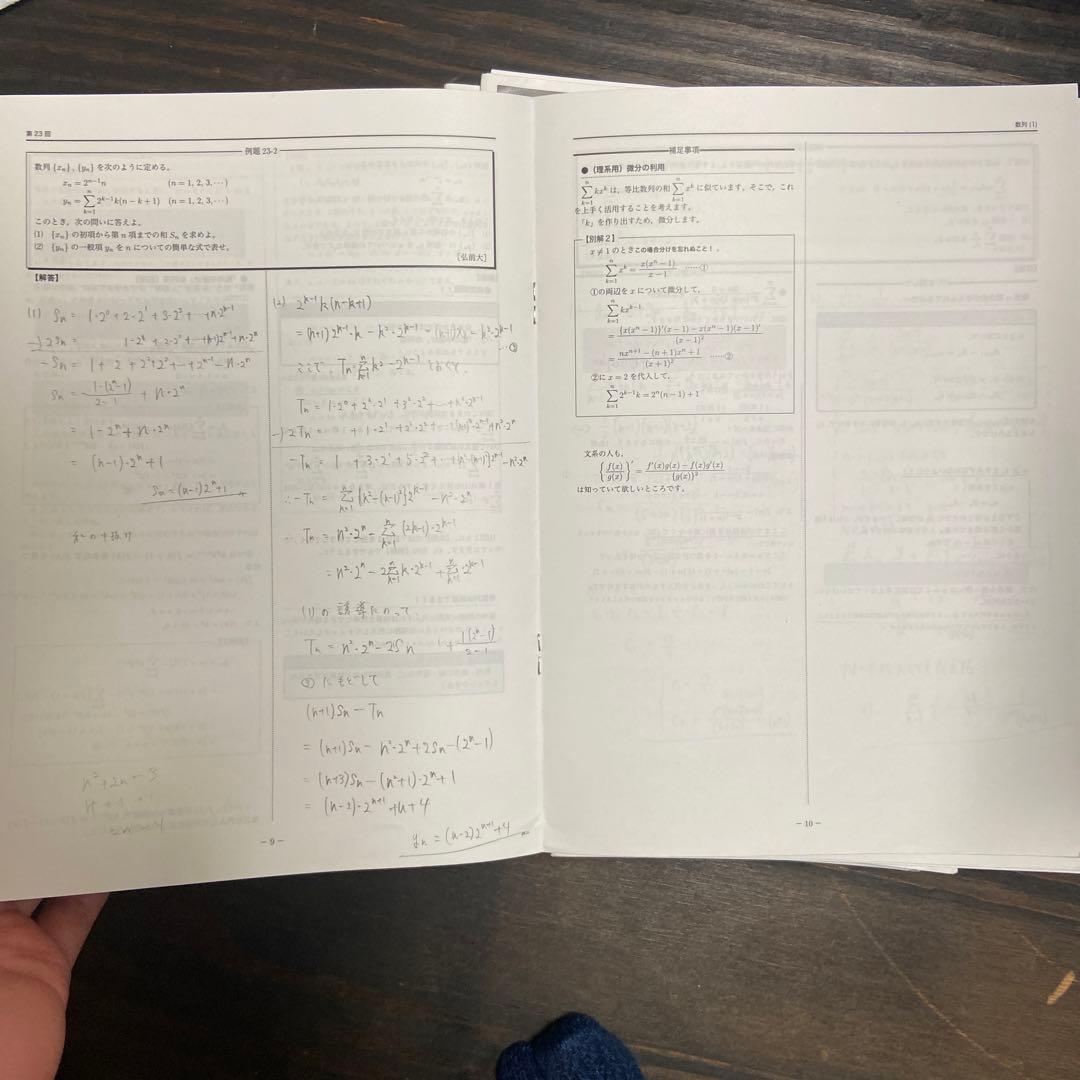 第23回
例題 23-2
数列 {xₙ}, {yₙ} を次のように定める。
xₙ = 2ⁿ⁻¹n (n = 1, 2, 3, ⋯)
yₙ = Σ[k=1→n] 2ᵏ⁻¹k(n−k+1) (n = 1, 2, 3, ⋯)
このとき、次の問いに答えよ。
(1) {xₙ} の初項から第 n 項までの和 Sₙ を求めよ。
(2) {yₙ} の一般項 yₙ を n についての簡単な式で表せ。
[弘前大]
【解答】
(1) Sₙ = 1·2⁰ + 2·2¹ + 3·2² + ⋯ + n·2ⁿ⁻¹
−) 2Sₙ = 1·2¹ + 2·2² + ⋯ + (n−1)2ⁿ⁻¹ + n·2ⁿ
−Sₙ = 1 + 2 + 2² + 2³ + ⋯ + 2ⁿ⁻¹ − n·2ⁿ
= 1 − 2ⁿ + n·2ⁿ
= (n−1)·2ⁿ + 1
Sₙ = (n−1)2ⁿ + 1
(2) 2ᵏ⁻¹k(n−k+1)
= (n+1)2ᵏ⁻¹·k − k²·2ᵏ⁻¹
ここで、Tₙ = Σ[k=1→n] k²·2ᵏ⁻¹ とおくと、
Tₙ = 1·2⁰ + 2²·2¹ + 3²·2² + ⋯ + n²·2ⁿ⁻¹
−) 2Tₙ = + 1·2¹ + 2²·2² + ⋯ + (n−1)²·2ⁿ⁻¹ + n²·2ⁿ
−Tₙ = 1 + 3·2¹ + 5·2² + ⋯ + {n²−(n−1)²}2ⁿ⁻¹ − n²·2ⁿ
∴ −Tₙ = Σ[k=1→n] {k²−(k−1)²}2ᵏ⁻¹ − n²·2ⁿ
∴ Tₙ = n²·2ⁿ − Σ[k=1→n] (2k−1)·2ᵏ⁻¹
= n²·2ⁿ − 2Σ[k=1→n] k·2ᵏ⁻¹ + Σ[k=1→n] 2ᵏ⁻¹
(1)の誘導にのって
Tₙ = n²·2ⁿ − 2Sₙ + 1(2ⁿ−1)/2−1
にもどして
(n+1)Sₙ − Tₙ
= (n+1)Sₙ − n²·2ⁿ + 2Sₙ − (2ⁿ−1)
= (n+3)Sₙ − (n²+1)·2ⁿ + 1
= (n−2)·2ⁿ⁺¹ + n + 4
yₙ = (n−2)2ⁿ⁺¹ + 4
n² + 2n − 3
− 9 −
数列 (1)
補足事項
●（理系用）微分の利用
Σ[k=1→n] kxᵏ は、等比数列の和 Σ[k=1→n] xᵏ に似ています。そこで、これ
を上手く活用することを考えます。
「k」を作り出すため、微分します。
【別解2】
x ≠ 1 のとき この場合分けを忘れぬこと！,
Σ[k=1→n] xᵏ = x(xⁿ−1)/x−1 ⋯⋯①
①の両辺を x について微分して,
Σ[k=1→n] kxᵏ⁻¹
= {x(xⁿ−1)}'(x−1) − x(xⁿ−1)(x−1)'/(x−1)²
= nxⁿ⁺¹ − (n+1)xⁿ + 1/(x+1)² ⋯⋯②
②に x = 2 を代入して,
Σ[k=1→n] 2ᵏ⁻¹k = 2ⁿ(n−1) + 1
文系の人も,
{f(x)/g(x)}' = f'(x)g(x) − f(x)g'(x)/{g(x)}²
は知っていて欲しいところです。
− 10 −